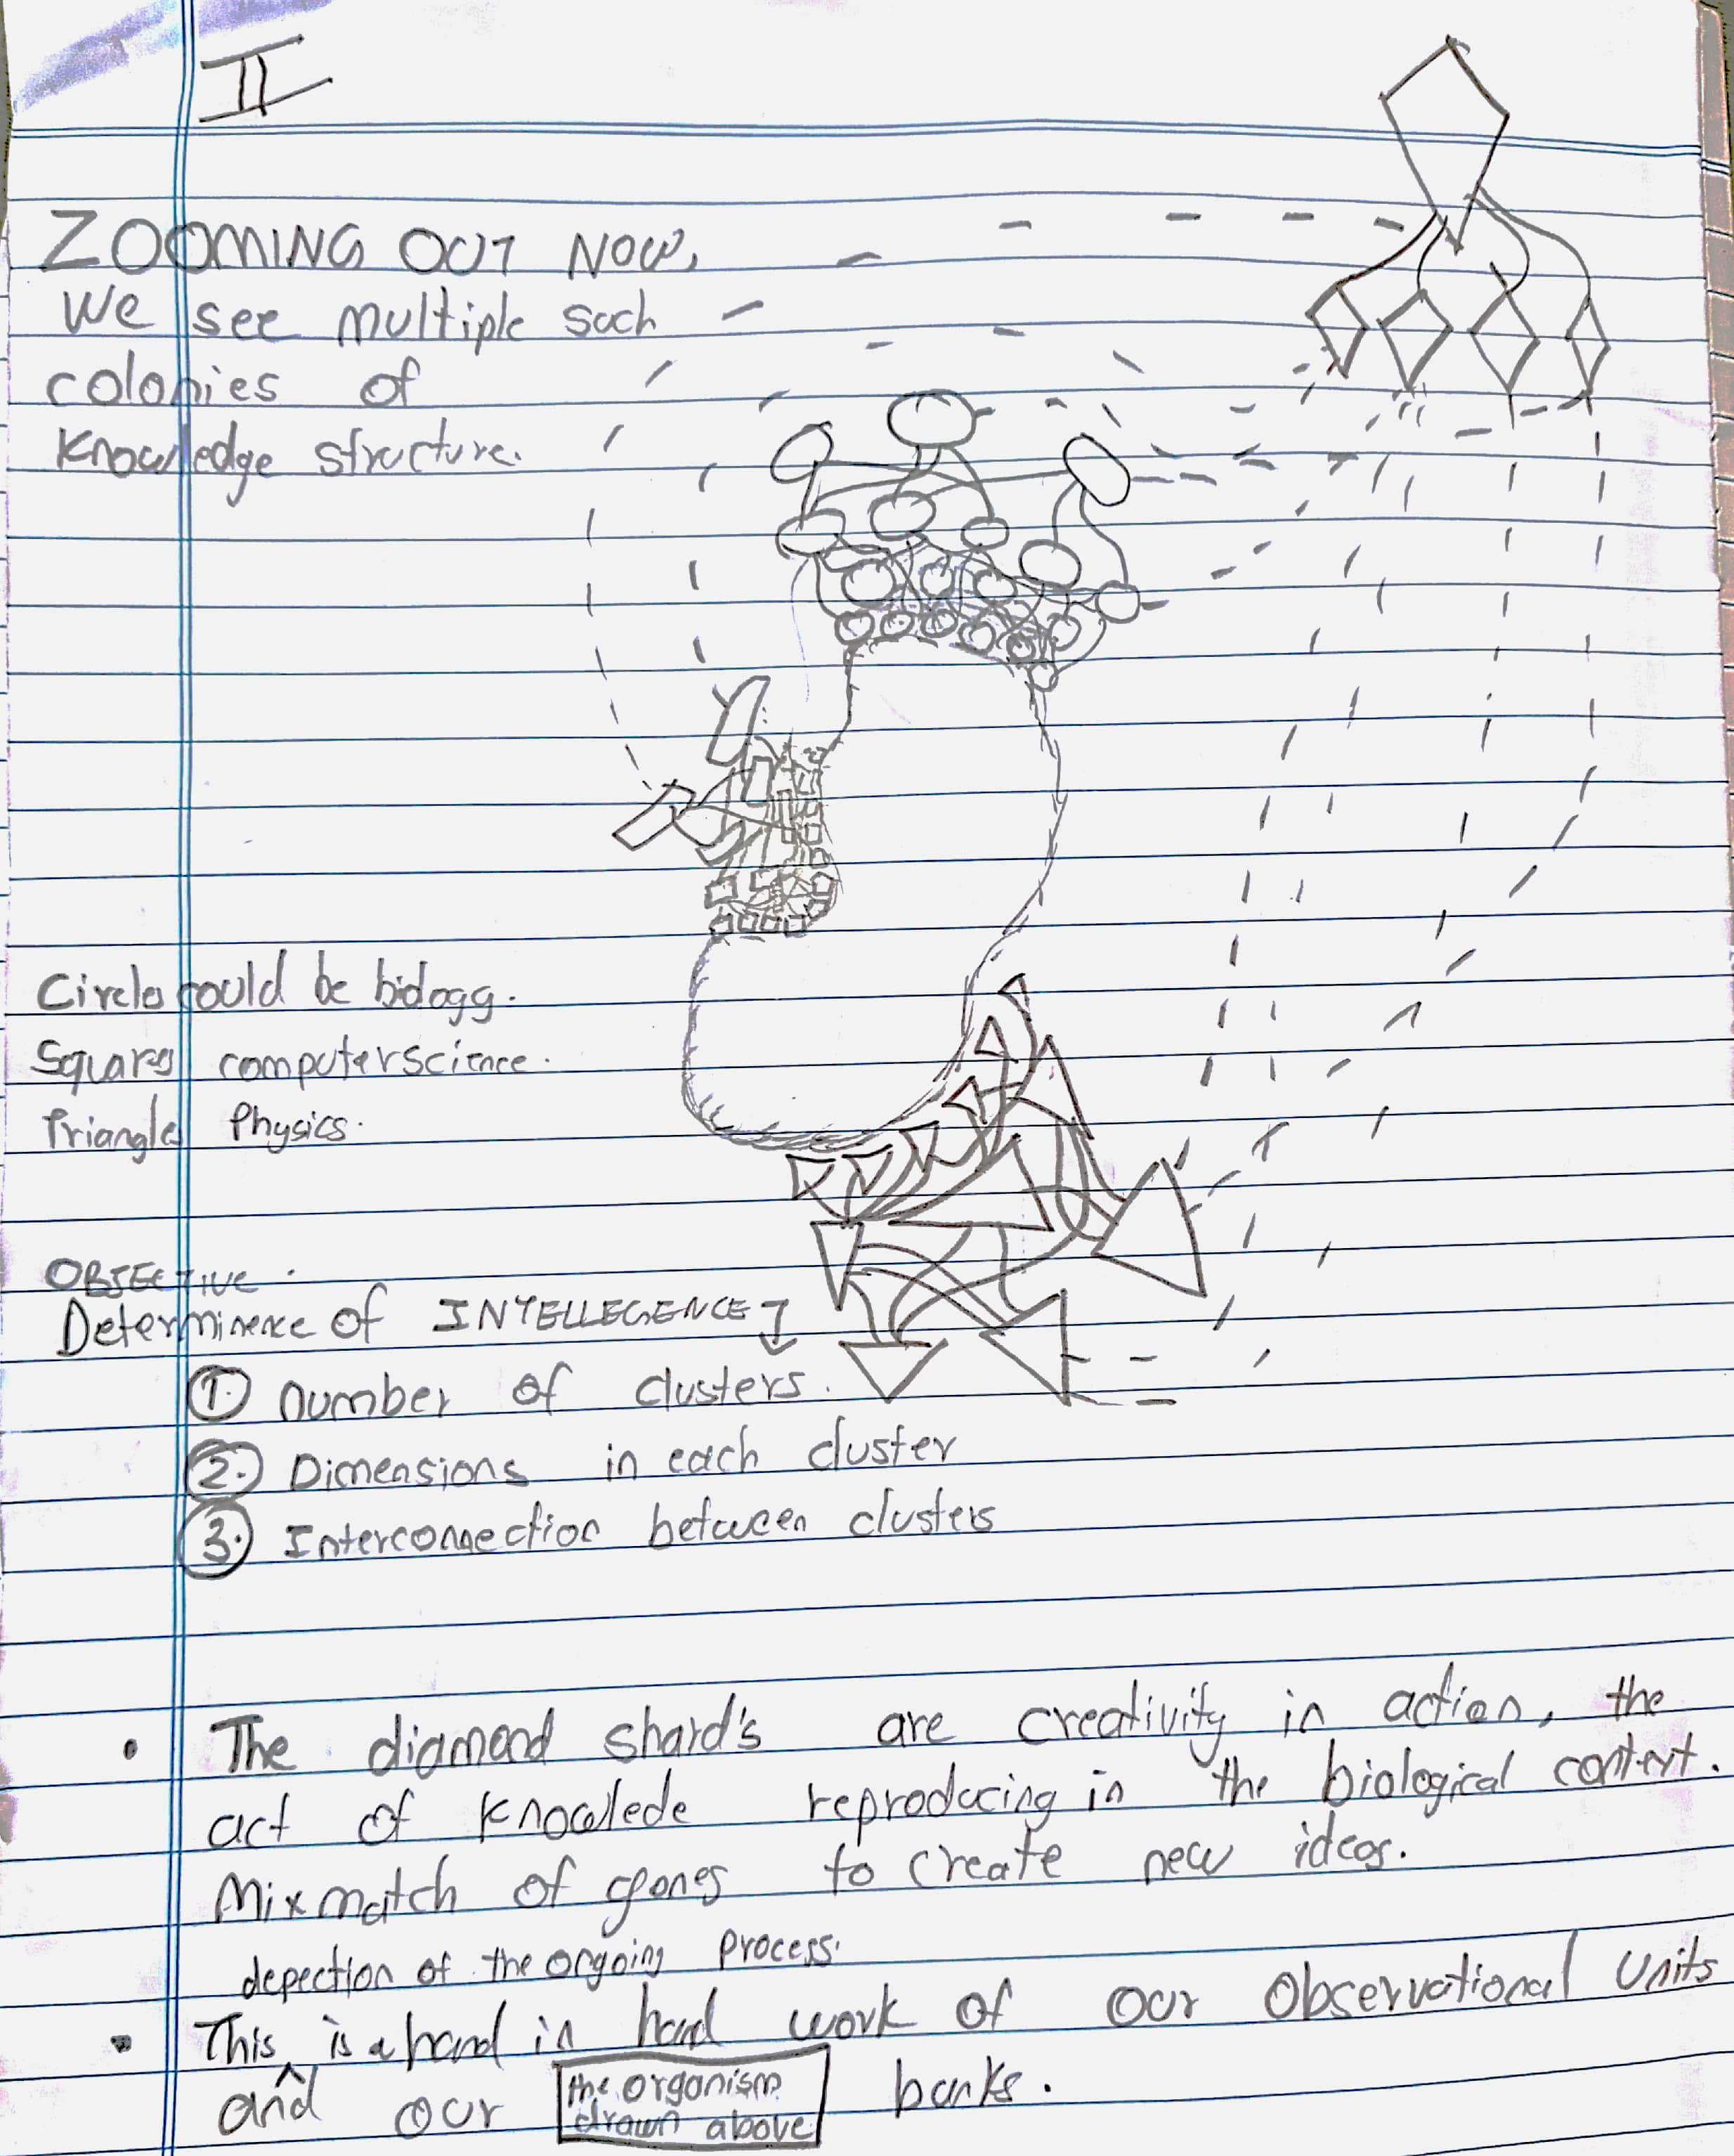 II
ZOOMING OUT NOW,
We see multiple such
colonies of
Knowledge structure.
Circle could be biology.
Square computerscience.
Triangle Physics.
OBJECTIVE.
Determinence of INTELLEGENCE
1. number of clusters.
2. Dimensions in each cluster
3. Interconnection between clusters
• The diamond shard's are creativity in action, the
act of knowlede reproducing in the biological context.
Mixmatch of genes to create new ideas.
depection of the ongoing process.
• This ^ is a hand in hand work of our Observational Units
and our the organism banks.
drawn above